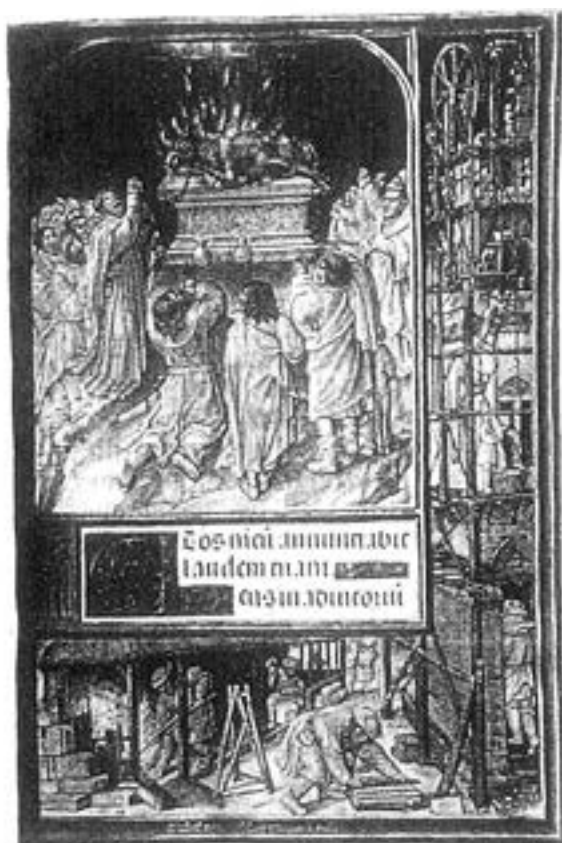 t os meū annuntiabit
laudem tuam
eus in adiutoriū